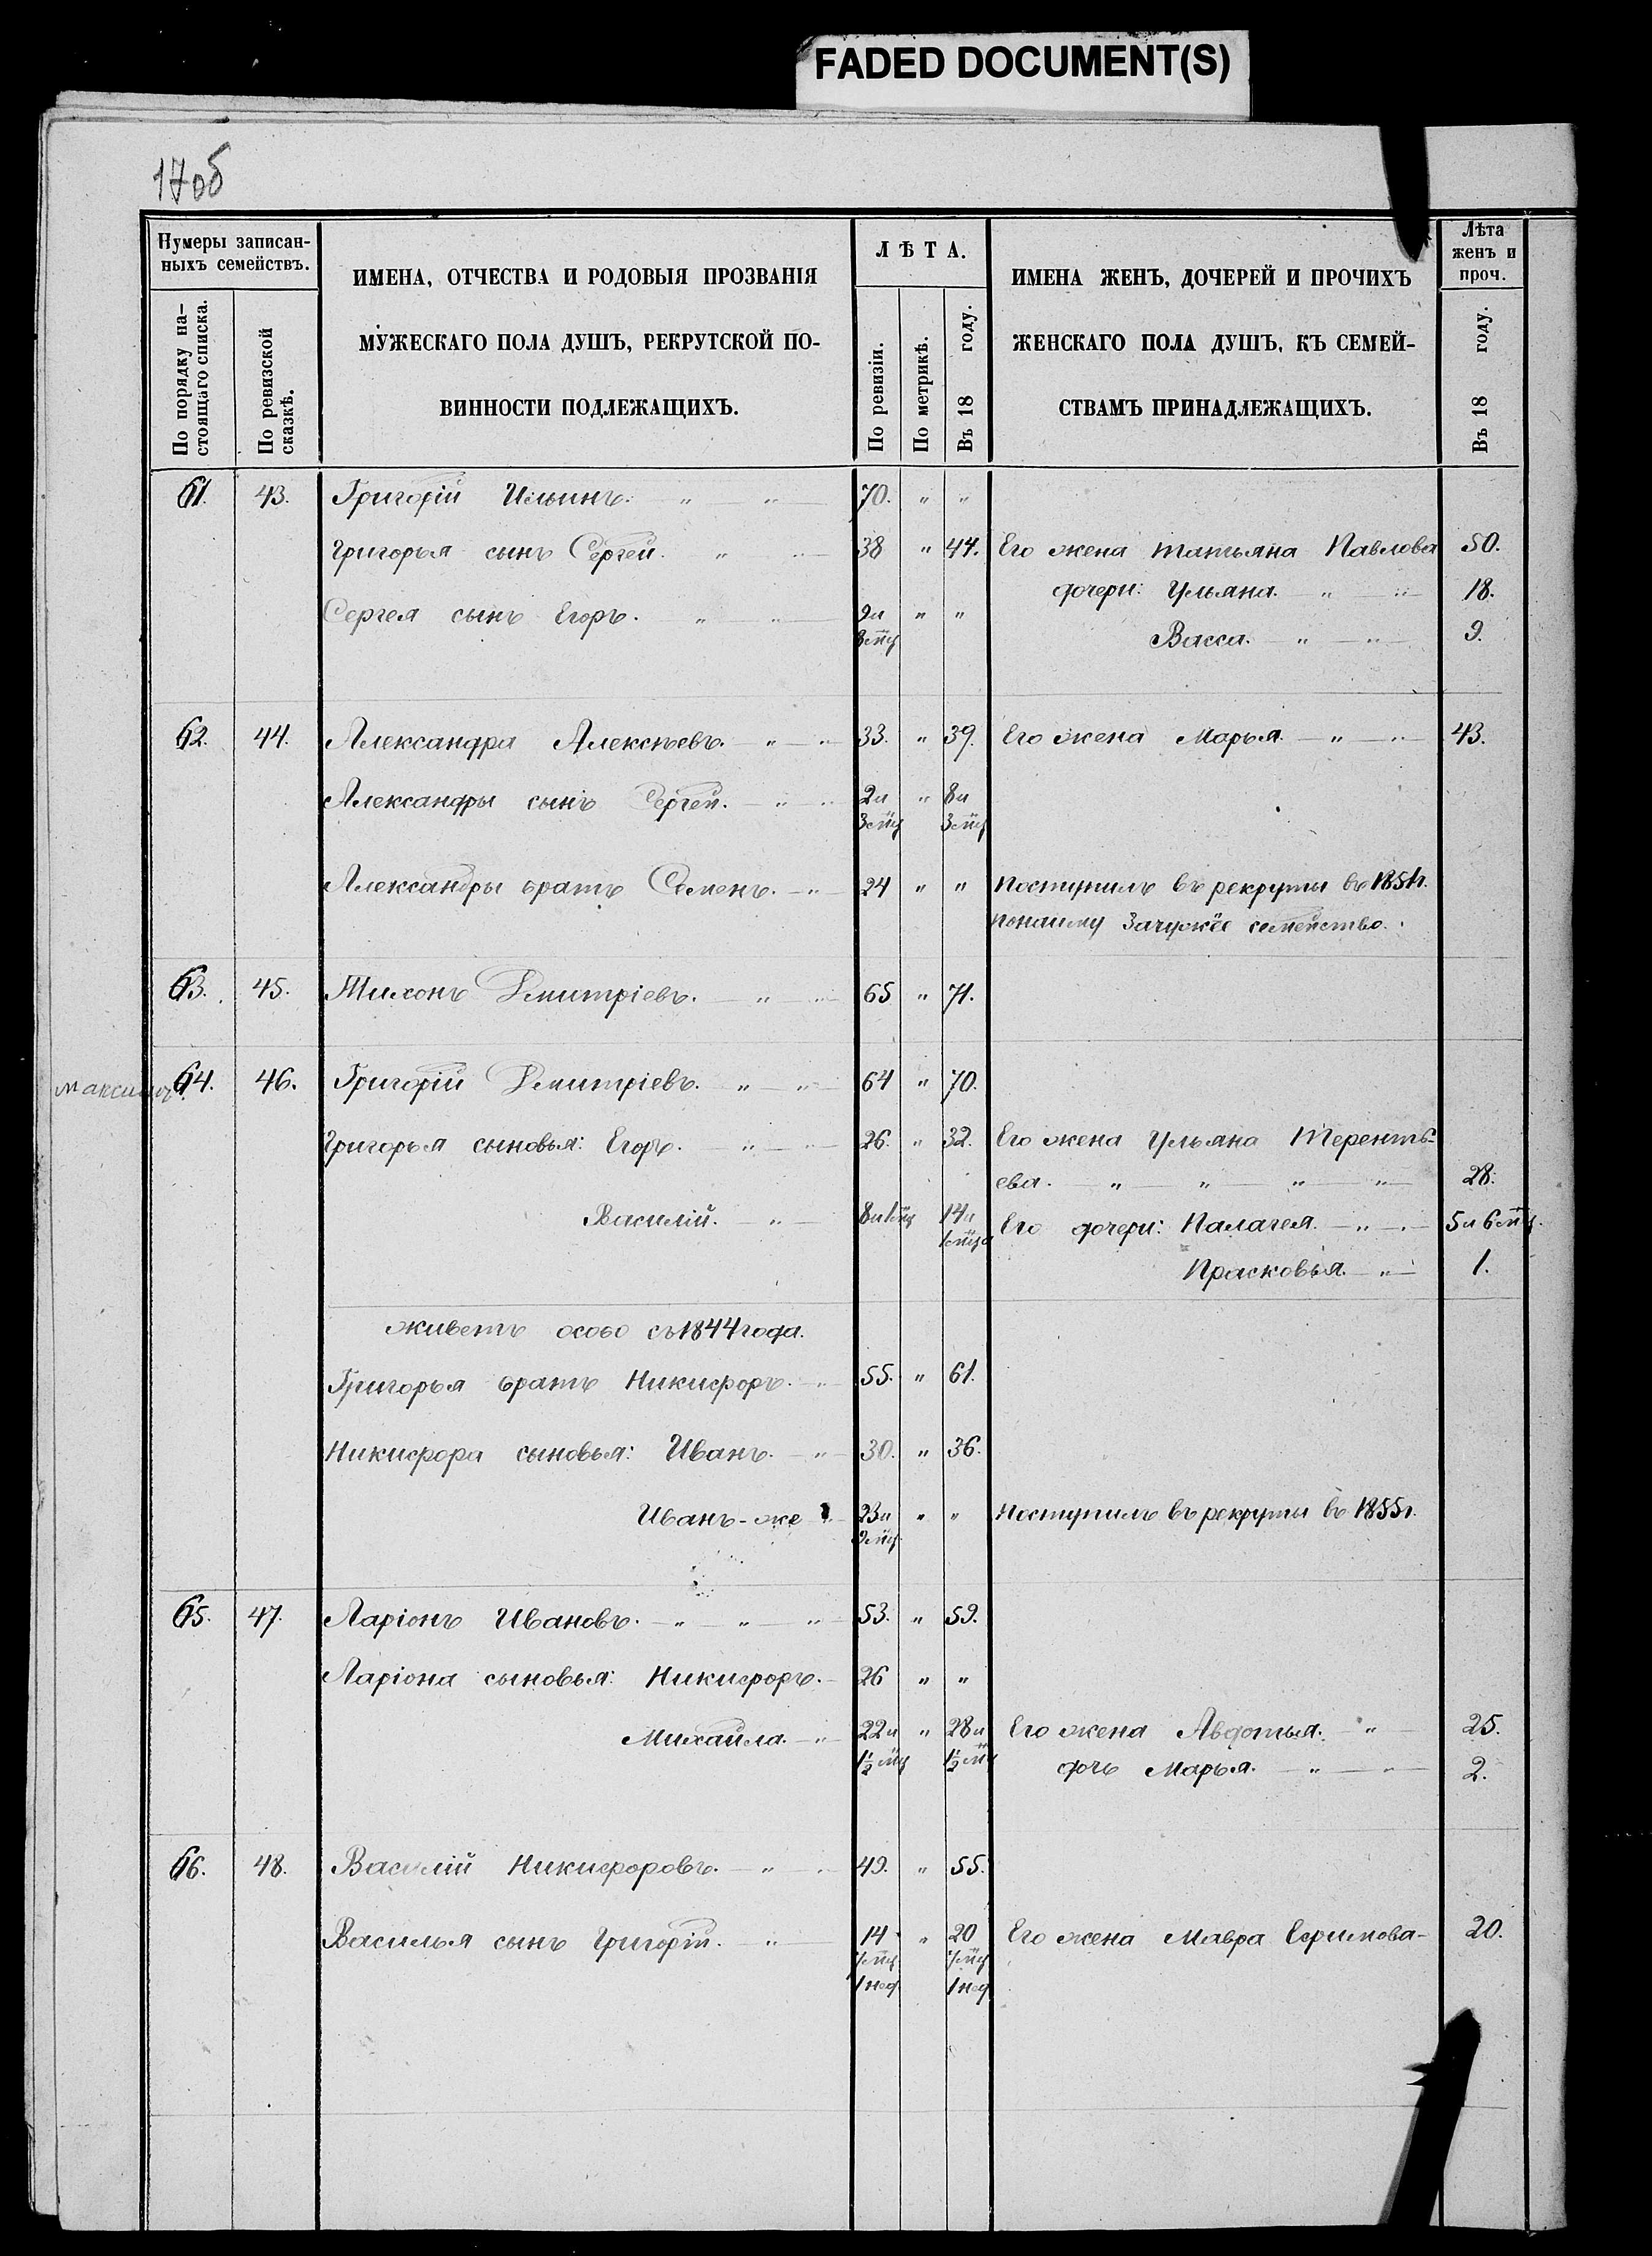 FADED DOCUMENT(S)
17об
Нумеры записан-
ныхъ семействъ.
По порядку на-
стоящаго списка.
По ревизской
сказкѣ.
ИМЕНА, ОТЧЕСТВА И РОДОВЫЯ ПРОЗВАНІЯ
МУЖЕСКАГО ПОЛА ДУШЪ, РЕКРУТСКОЙ ПО-
ВИННОСТИ ПОДЛЕЖАЩИХЪ.
ЛѢТА.
По ревизіи.
По метрикѣ.
Въ 18 году.
ИМЕНА ЖЕНЪ, ДОЧЕРЕЙ И ПРОЧИХЪ
ЖЕНСКАГО ПОЛА ДУШЪ, КЪ СЕМЕЙ-
СТВАМЪ ПРИНАДЛЕЖАЩИХЪ.
Лѣта
женъ и
проч.
Въ 18 году.
61. 43. Григорій Ильинъ. " " 70. " "
Григорья сынъ Сергей. " " 38 " 44. Его жена Татьяна Павлова 50.
дочери: Ульяна. " " 18.
Сергея сынъ Егоръ. " " 9и " "
8мц
Васса. " " 9.
62. 44. Александра Алексѣевъ. " " 33. " 39. Его жена Марья. " " 43.
Александры сынъ Сергей. " " 2и " 8и
3мц 3мц
Александры братъ Семенъ. " 24 " " Поступилъ въ рекруты въ 1854г.
понайму зачужое семейство.
63. 45. Тихонъ Дмитріевъ. " " 65 " 71.
Максимъ
64. 46. Григорій Дмитріевъ. " " 64 " 70.
Григорья сыновья: Егоръ. " " 26. " 32. Его жена Ульяна Терентъ-
ева. " " " " 28.
Василій. " 8и1мц 14и
1мца Его дочери: Палагея. " " 5и6мц.
Прасковья. " 1.
живетъ особо съ 1844 года.
Григорья братъ Никифоръ. " 55. " 61.
Никифора сыновья: Иванъ. " 30. " 36.
Иванъ-же 23и " " Поступилъ въ рекруты въ 1855г.
9мц
65. 47. Ларіонъ Ивановъ. " " " 53. " 59.
Ларіона сыновья: Никифоръ. 26 " "
Михайла. " 22и " 28и Его жена Авдотья. " 25.
1½мц 1½мц дочь Марья. " " 2.
66. 48. Василій Никифоровъ. " " 49. " 55.
Василья сынъ Григорій. " 14 " 20 Его жена Мавра Ефимова- 20.
7мц 7мц
1нед 1нед